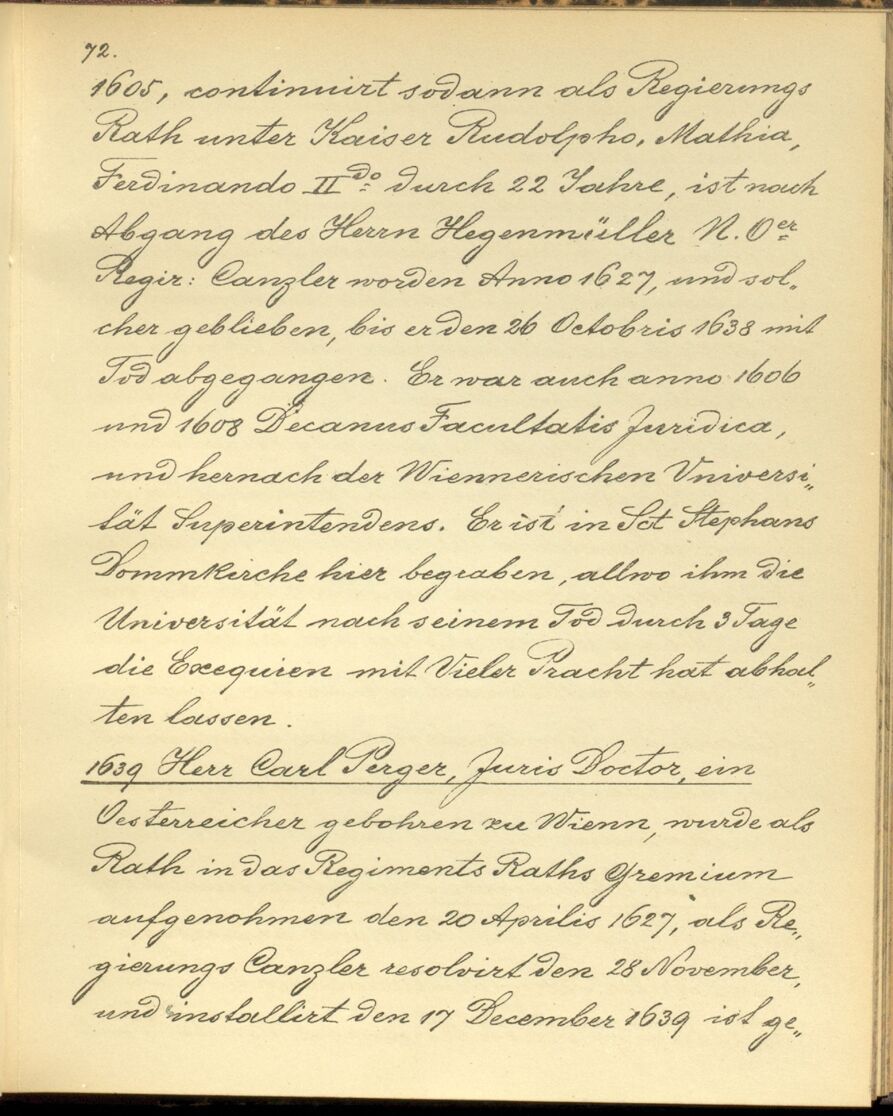 72.
1605, continuirt sodann als Regierungs
Rath unter Kaiser Rudolpho, Mathia,
Ferdinando II do durch 22 Jahre, ist nach
Abgang des Herrn Hegenmüller N. Oer
Regir: Canzler worden Anno 1627, und sol„
cher geblieben, bis er den 26 Octobris 1638 mit
Tod abgegangen. Er war auch anno 1606
und 1608 Decanus Facultatis Juridica,
und hernach der Wiennerischen Universi„
tät Superintendens. Er ist in Sct Stephans
Dommkirche hier begraben, allwo ihm die
Universität nach seinem Tod durch 3 Tage
die Exequien mit Vieler Pracht hat abhal„
ten lassen.
1639 Herr Carl Perger, Juris Doctor, ein
Oesterreicher gebohren zu Wienn, wurde als
Rath in das Regiments Raths Gremium
aufgenohmen den 20 Aprilis 1627, als Re„
gierungs Canzler resolvirt den 28 November,
und installirt den 17 December 1639 ist ge„